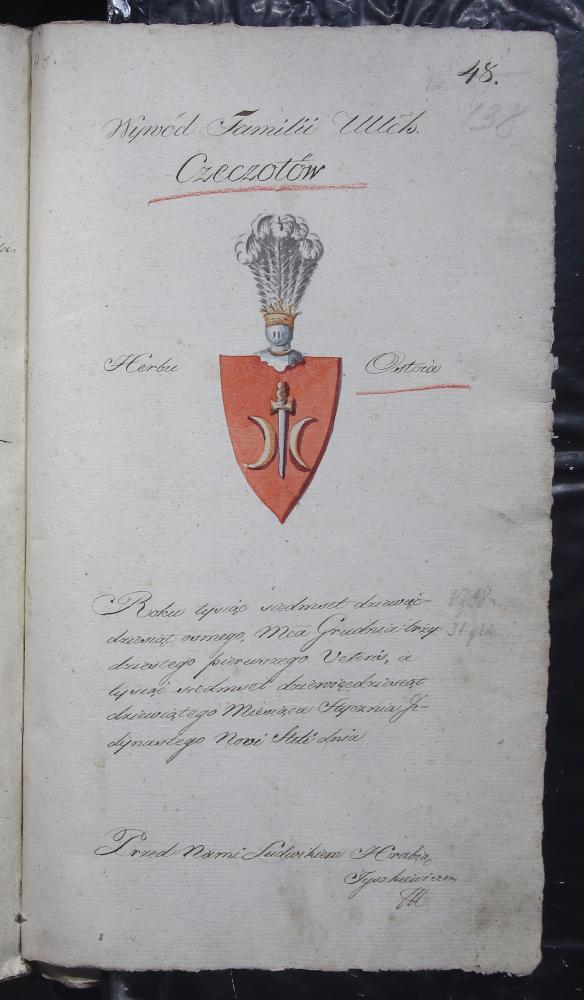 48.
138
Wywód Familii Ulch.
Czeczotów
Herbu Ostoia
Roku tysiąc siedmset dziewięć
dziesiąt osmego, Mca Grudnia trzy
dziestego pierwszego Veteri, a
tysiąc siedmset dziewięćdziesiąt
dziewiątego Miesiąca Stycznia Je-
dynastego Novi Stili dnia
1798
Przed Nami Ludwikiem Hrabią
Tyszkiewiczem